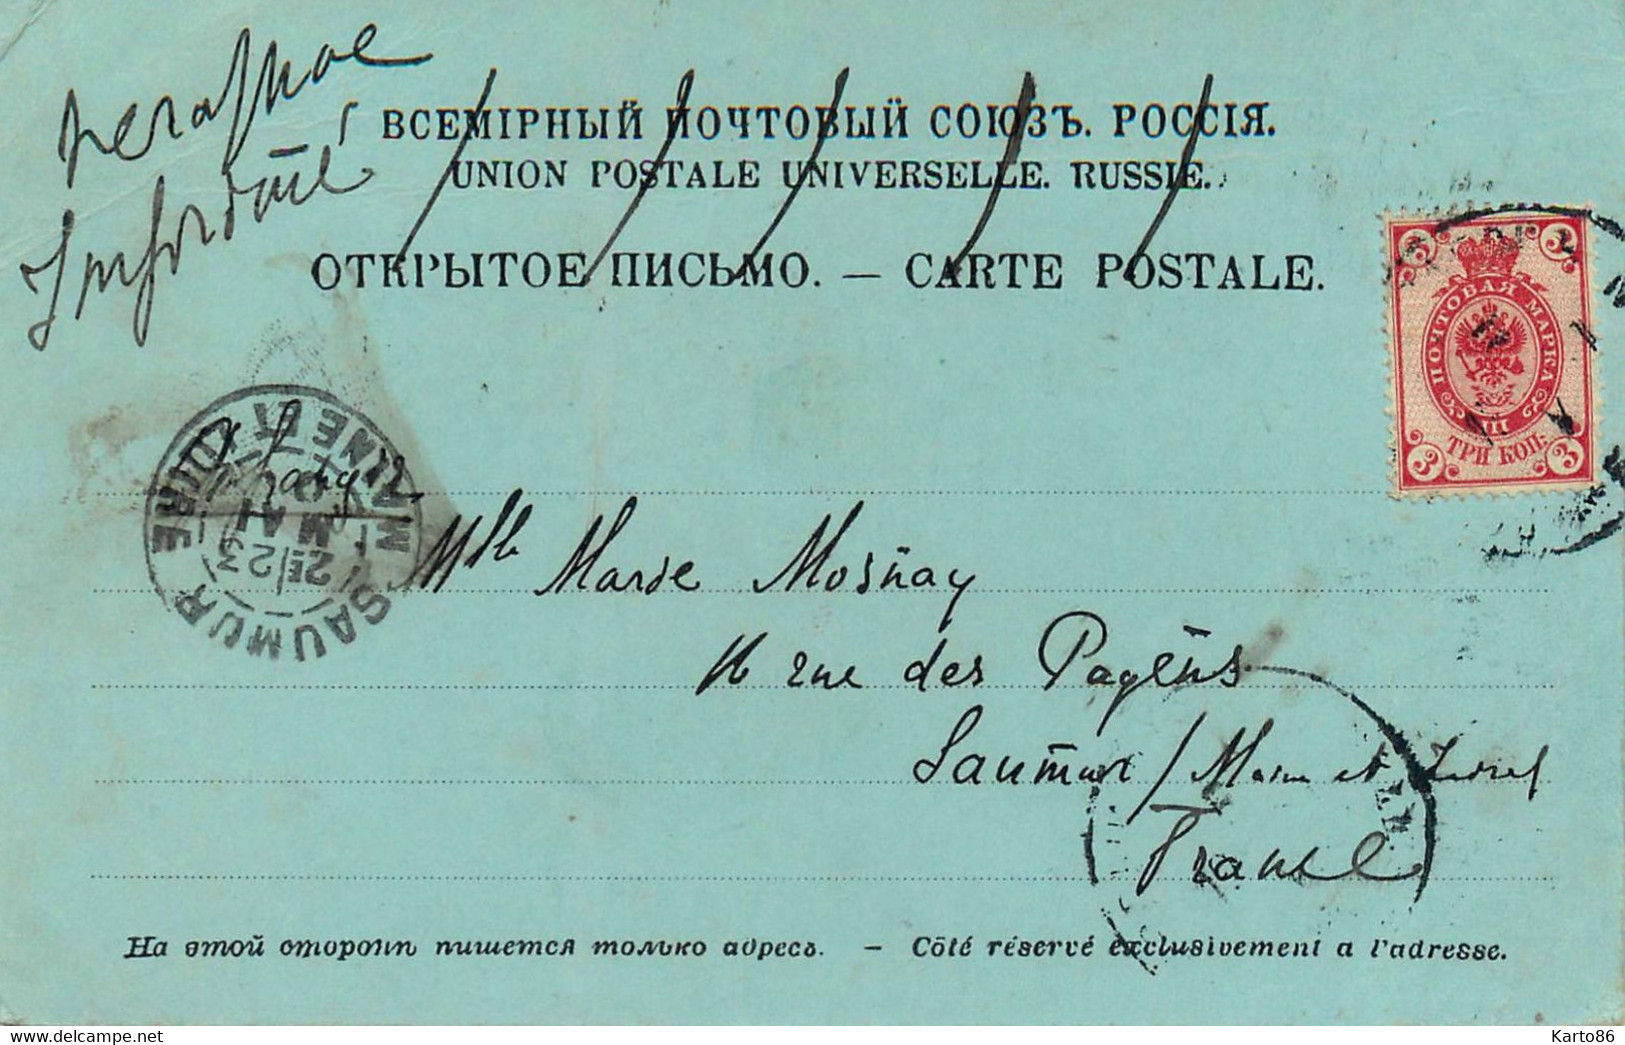 ВСЕМІРНЫЙ ПОЧТОВЫЙ СОЮЗЪ. РОССІЯ.
UNION POSTALE UNIVERSELLE. RUSSIE.
ОТКРЫТОЕ ПИСЬМО. — CARTE POSTALE.
3 3
ПОЧТОВАЯ МАРКА
III
3 ТРИ КОП. 3
SAUMUR
MAINE ET LOIRE
2E/23
MAI
Mlle Marie Mosnay
16 rue des Payens
Saumur / Maine et
France
На этой сторонѣ пишется только адресъ. — Côté réservé exclusivement a l'adresse.
delcampe.net
Karto86